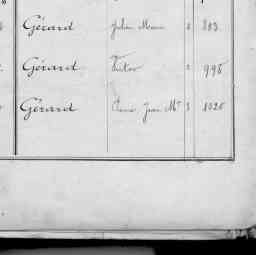 Gérard Julie Marie 2 883
Gérard Victor 2 998
Gérard Jean Mie 3 1020